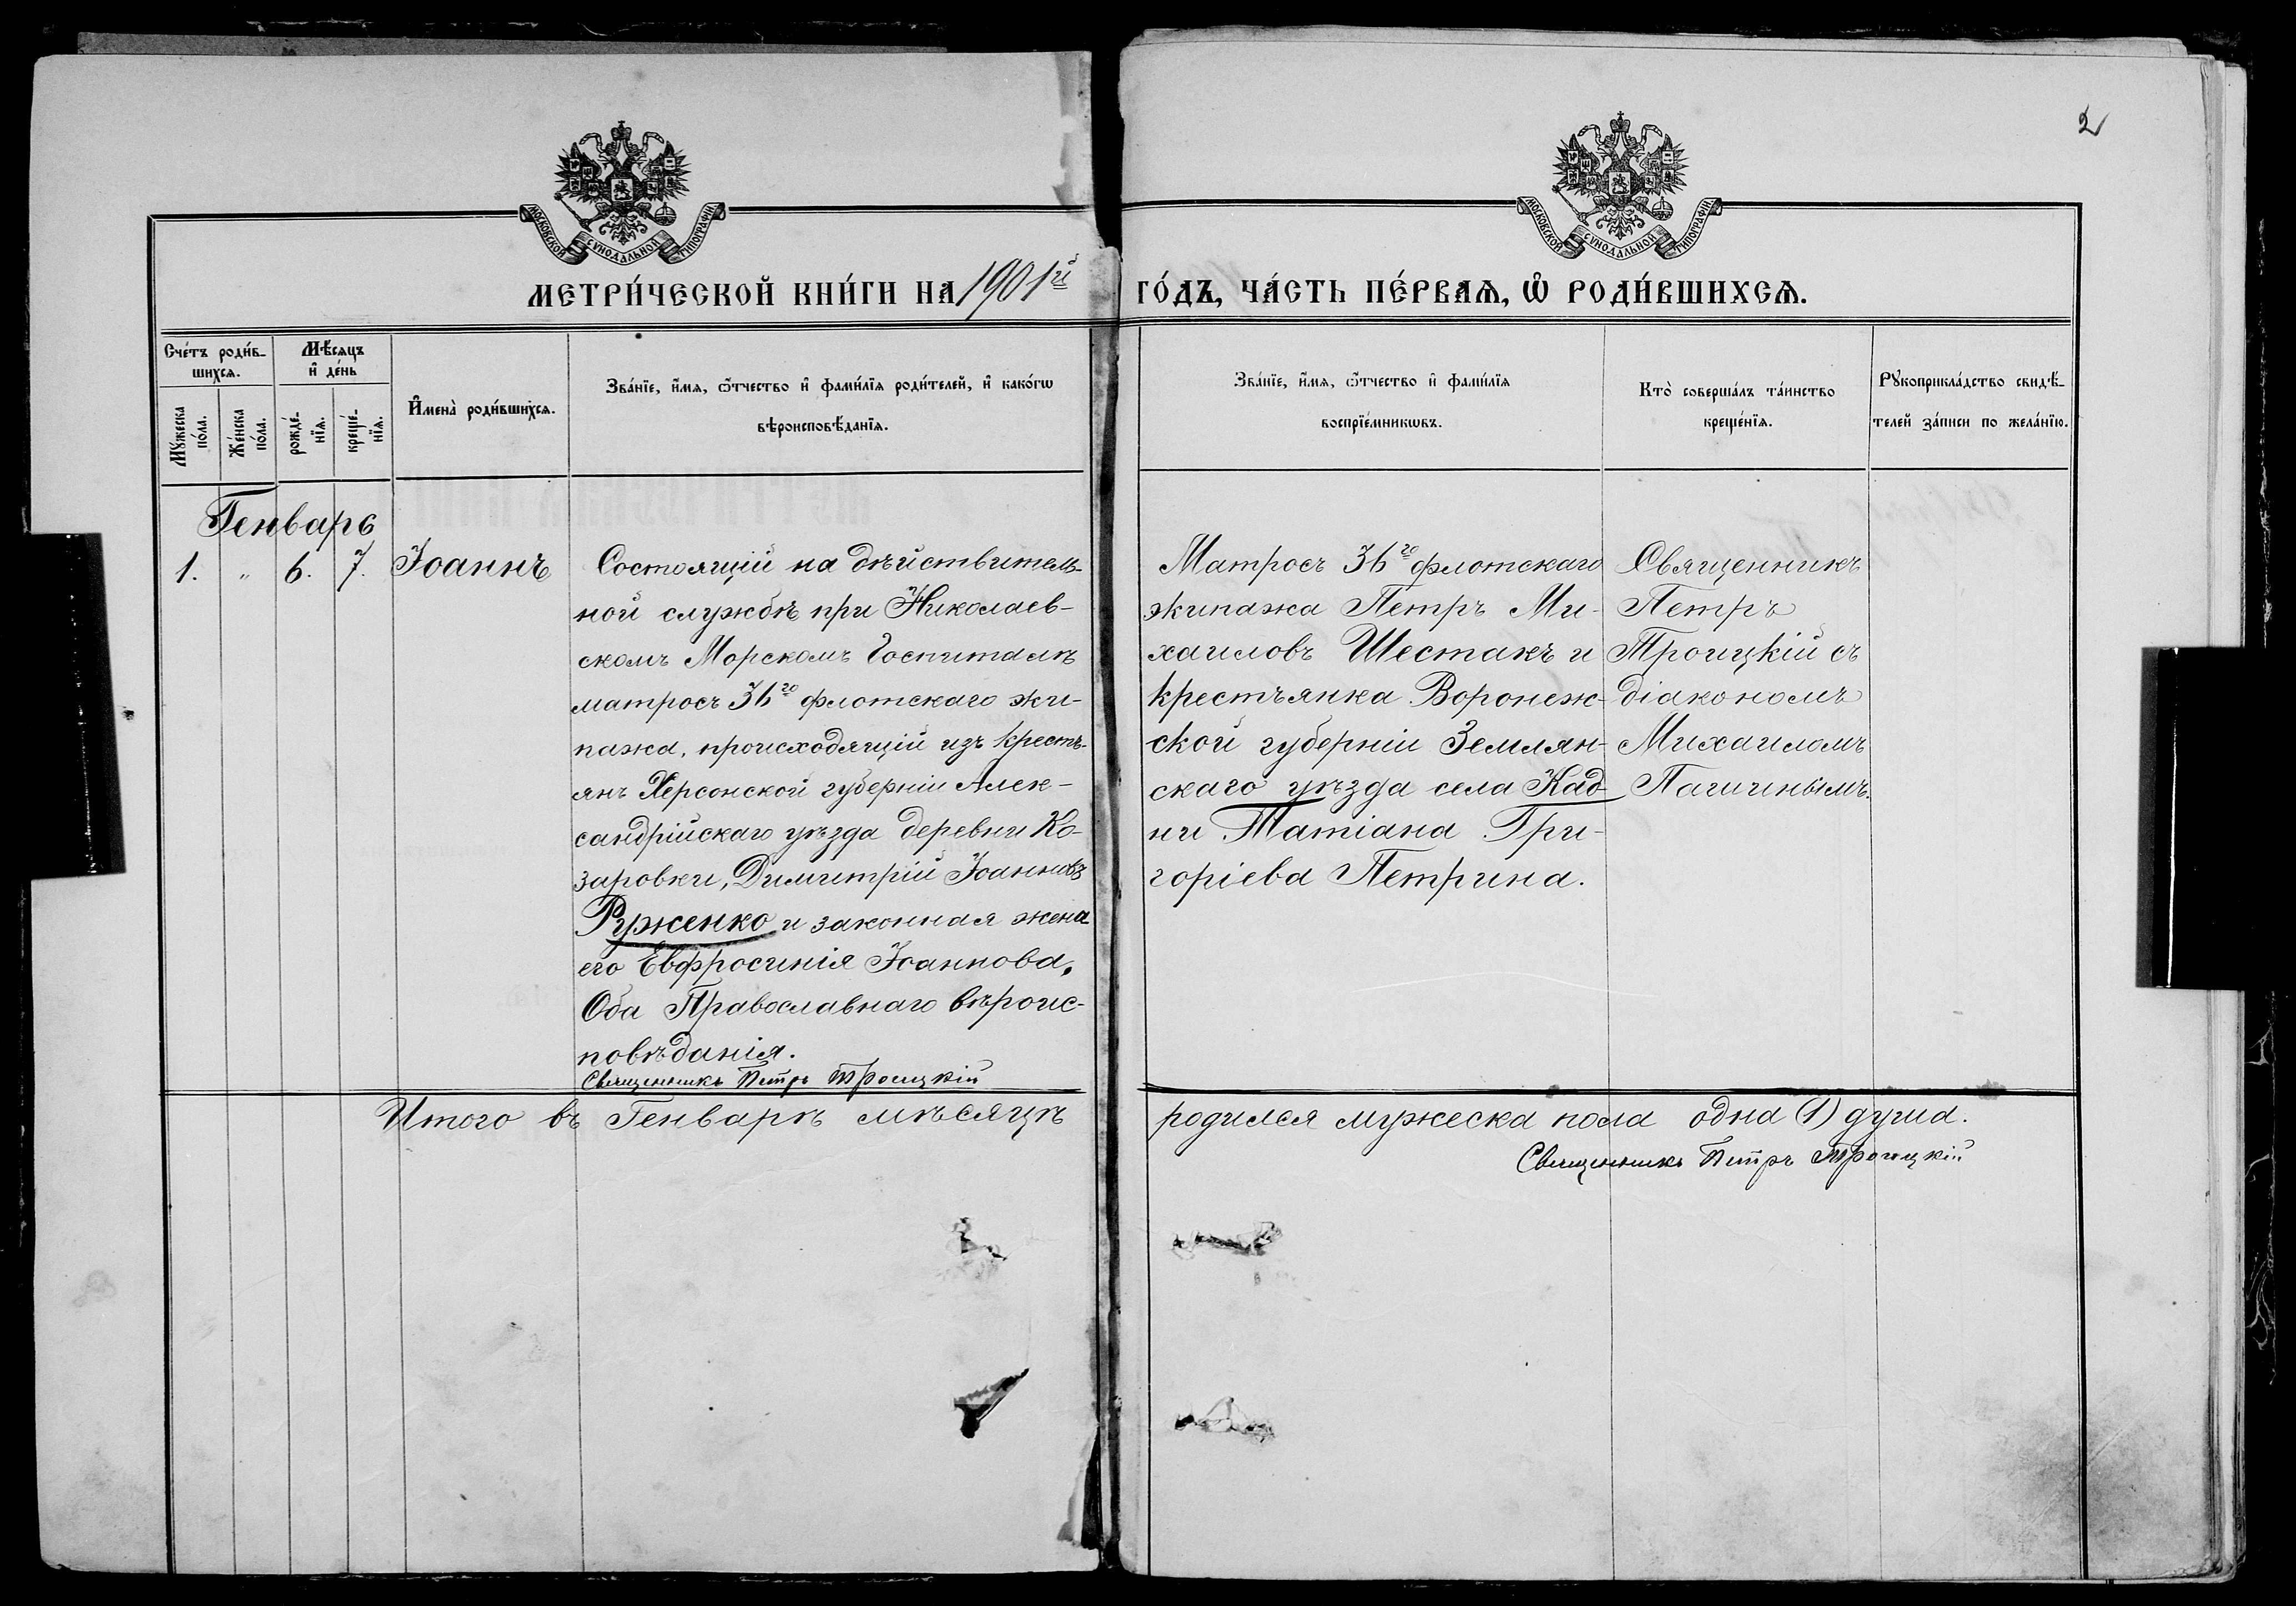 2
МОСКОВСКОЙ СУНОДАЛЬНОЙ ТИПОГРАФІИ
МОСКОВСКОЙ СУНОДАЛЬНОЙ ТИПОГРАФІИ
МЕТРИ́ЧЕСКОЙ КНИ́ГИ НА 1901й ГО́ДЪ, ЧА́СТЬ ПЕ́РВАѦ, Ѡ РОДИ́ВШИХСѦ.
Сче́тъ роди́в-
шихсѧ.
Мꙋ́жеска
по́ла.
Же́нска
по́ла.
Мѣ́сѧцъ
и҆ де́нь
рожде́-
нїѧ.
креще́-
нїѧ.
И҆мена̀ роди́вшихсѧ.
Зва́нїе, и҆́мѧ, ѻ҆́тчество и҆ фами́лїѧ роди́телей, и҆ како́гѡ
вѣроисповѣ́данїѧ.
Зва́нїе, и҆́мѧ, ѻ҆́тчество и҆ фами́лїѧ
воспрїе́мникѡвъ.
Кто̀ соверша́лъ та́инство
креще́нїѧ.
Рꙋкоприкла́дство свидѣ́-
телей за́писи по жела́нїю.
Генварь
1. „ 6. 7. Іоаннъ
Состоящій на дѣйствитель-
ной службѣ при Николаев-
скомъ Морскомъ Госпиталѣ
матросъ 36го флотскаго эки-
пажа, происходящій изъ кресть-
янъ Херсонской губерніи Алек-
сандрійскаго уѣзда деревни Ко-
заровки, Димитрій Іоанновъ
Руженко и законная жена
его Евфросинія Іоаннова,
Оба Православнаго вѣроис-
повѣданія.
Священникъ Петръ Троицкій
Матросъ 36го флотскаго
экипажа Петръ Ми-
хаиловъ Шестакъ и
крестьянка Воронеж-
ской губерніи Землян-
скаго уѣзда села Кад-
ни Татіана Гри-
горіева Петрина.
Священникъ
Петръ
Троицкій съ
діакономъ
Михаиломъ
Пагинымъ.
Итого въ Генварѣ мѣсяцѣ родился мужеска пола одна (1) душа.
Священникъ Петръ Троицкій